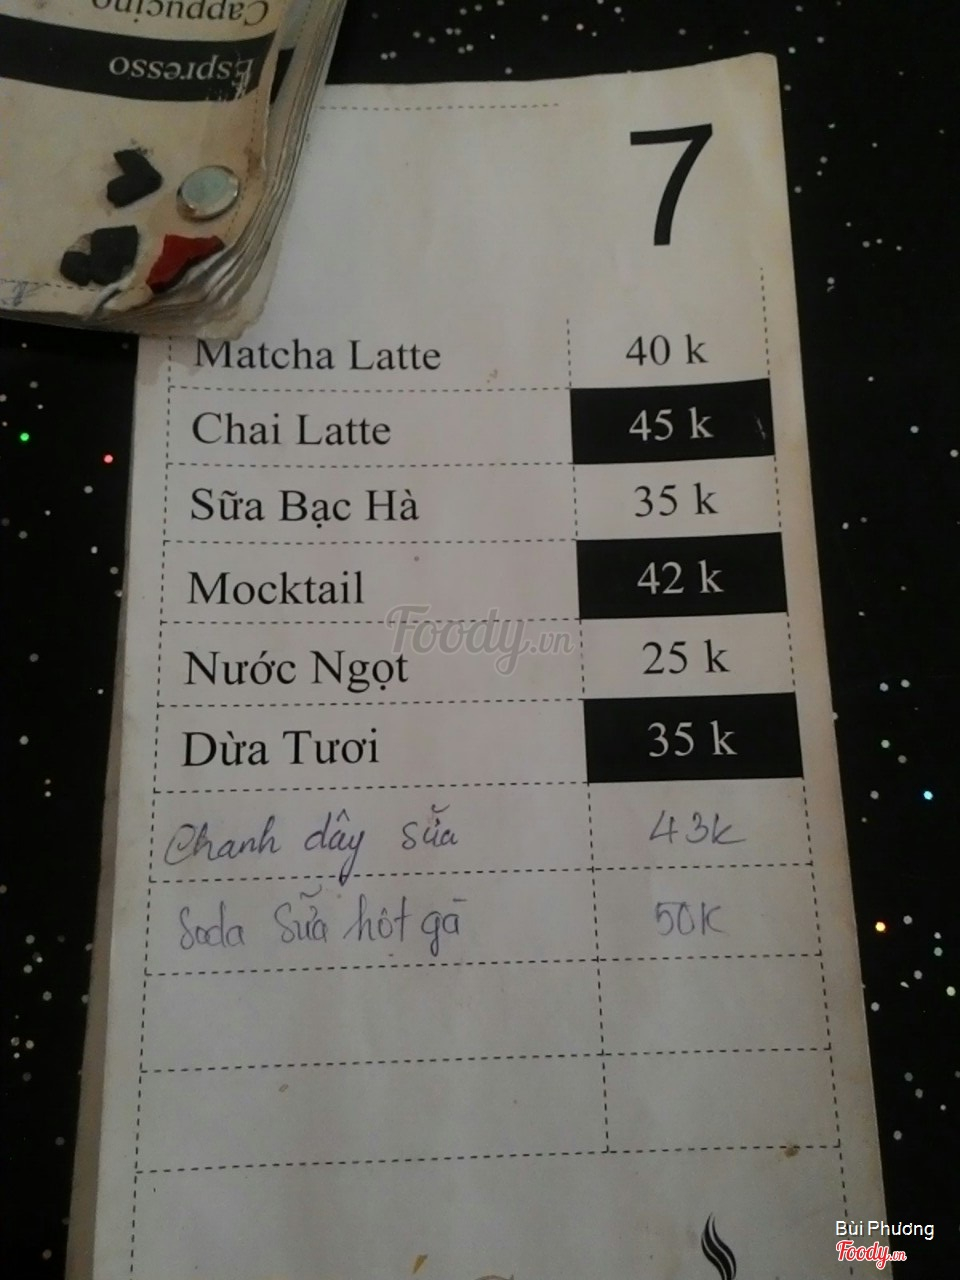 Cappucino
Espresso
7
Matcha Latte 40 k
Chai Latte 45 k
Sữa Bạc Hà 35 k
Mocktail 42 k
Nước Ngọt 25 k
Dừa Tươi 35 k
Chanh dây sữa 43k
Soda Sữa hột gà 50K
Foody.vn
Bùi Phương
Foody.vn